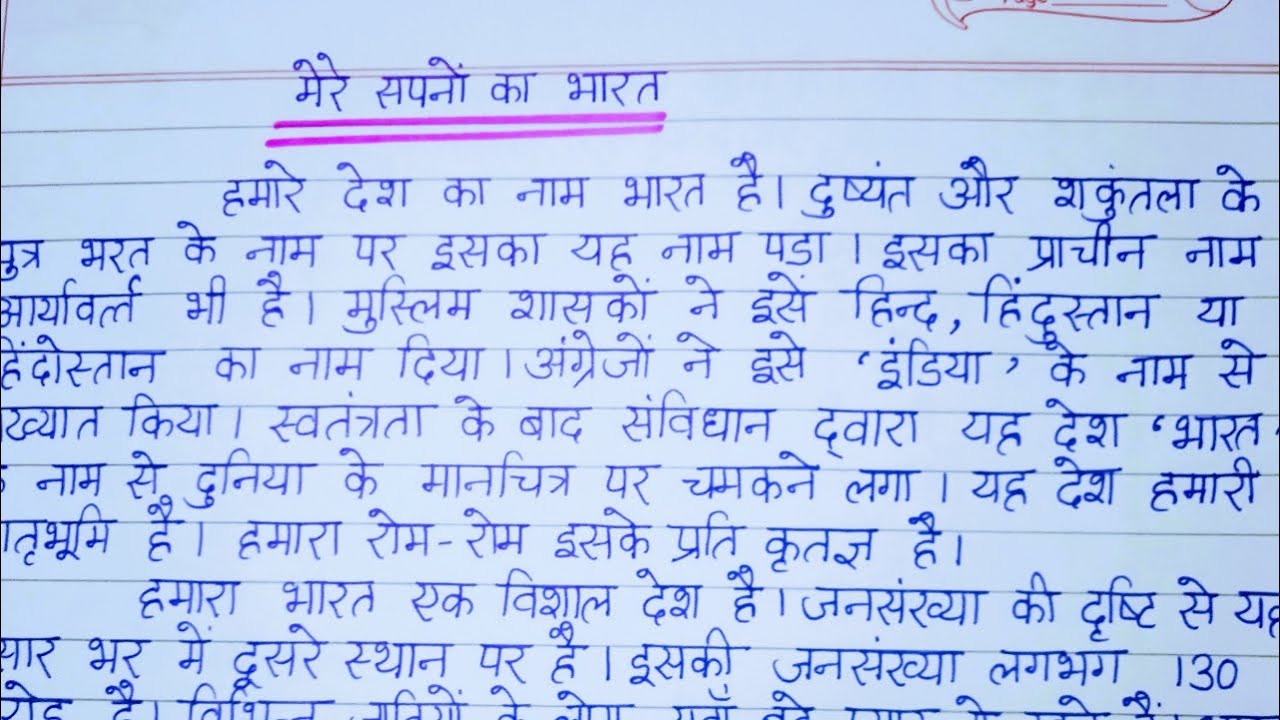 मेरे सपनों का भारत
हमारे देश का नाम भारत है। दुष्यंत और शकुंतला के
पुत्र भरत के नाम पर इसका यह नाम पडा । इसका प्राचीन नाम
आर्यावर्त्त भी है। मुस्लिम शासकों ने इसे हिन्द, हिंदुस्तान या
हिंदोस्तान का नाम दिया । अंग्रेजों ने इसे ‘इंडिया’ के नाम से
ख्यात किया। स्वतंत्रता के बाद संविधान द्‌वारा यह देश ‘भारत’
नाम से दुनिया के मानचित्र पर चमकने लगा । यह देश हमारी
मातृभूमि है। हमारा रोम-रोम इसके प्रति कृतज्ञ है।
हमारा भारत एक विशाल देश है। जनसंख्या की दृष्टि से यह
भर में दूसरे स्थान पर है। इसकी जनसंख्या लगभग 130
है। विभिन्न